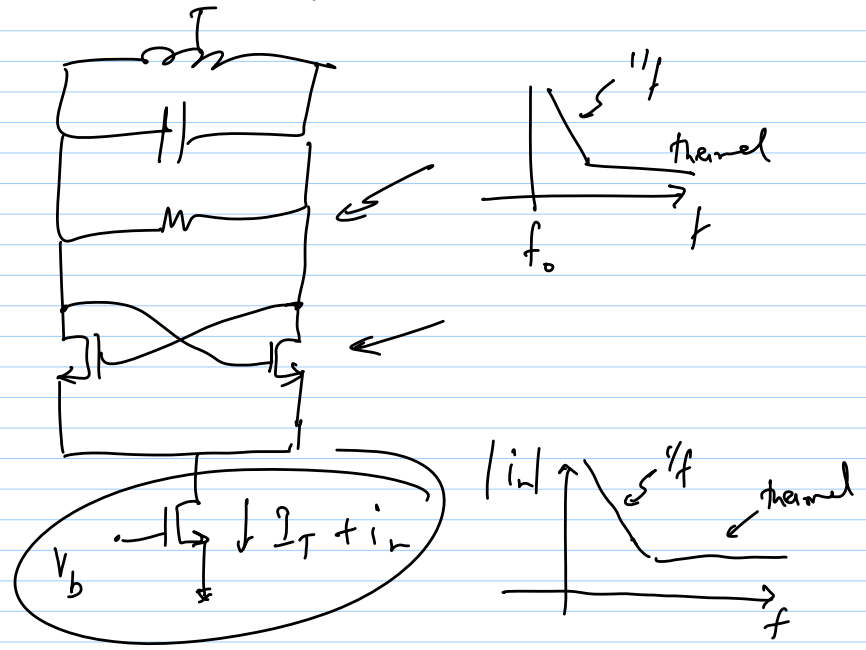 1/f
thermal
f
f₀
|iₙ|
1/f
thermal
V_b
I_T + iₙ
f